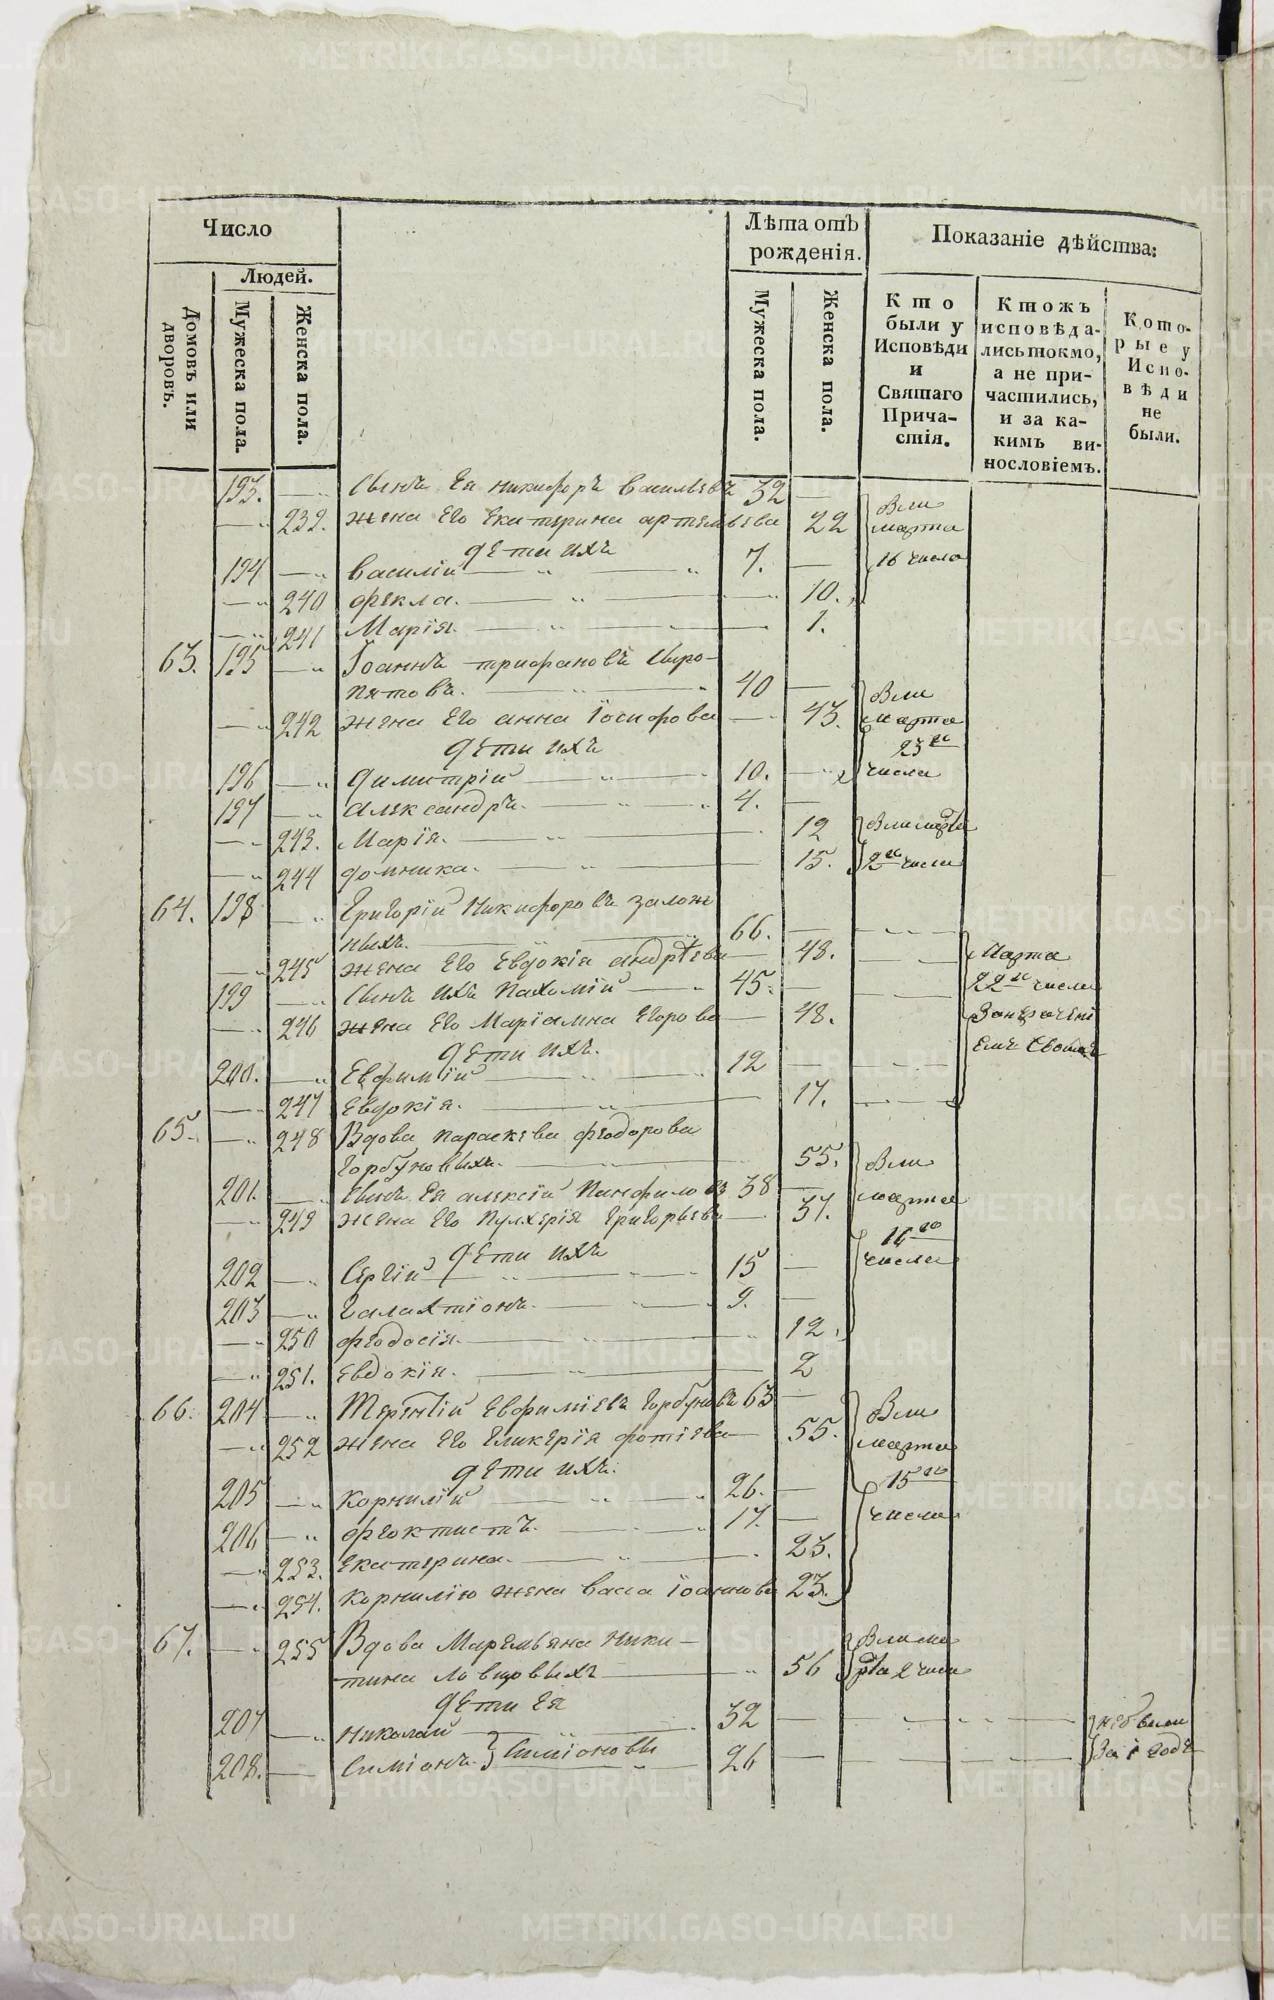 Число
Людей.
Домовъ или дворовъ.
Мужеска пола.
Женска пола.
Лѣта отъ рожденія.
Мужеска пола.
Женска пола.
Показаніе дѣйства:
Кто были у Исповѣди и Святаго Причастія.
Ктожъ исповѣдались токмо, а не причастились, и за какимъ винословіемъ.
Которые у Исповѣди не были.
193. Сынъ Ея Никифоръ Васильевъ 32 Были
239. жена Его Екатерина артемьева 22 марта
дети ихъ 16 числа
194 Василій 7.
240 фекла. 10.
241 Марія. 1.
63. 195 Іоаннъ трифановъ Сыро-
пятовъ. 40 Были
242 жена Его анна Іосифова 43. марта
дети ихъ 23го
196 Димитрій 10. числа
197 александръ. 4.
243. Марія. 12 Были марта
244 домника. 15. 2го числа
64. 198 Григорій Никифоровъ залож
ныхъ. 66.
245 жена Его Евдокія андрѣева 48. Марта
199 Сынъ ихъ Пахомій 45. 22го числа
246 жена Его Маріамна Егорова 48.
дети ихъ.
200. Евфимій 12
247 Евдокія. 17.
65. 248 Вдова параскева феодорова
Горбуновыхъ. 55. Были
201. Сынъ Ея алексій Панфиловъ 38 марта
249 жена Его Пулхерія григорьева 37. 16го
дети ихъ числа
202 Сергій 15
203 Галахтіонъ. 9.
250 феодосія. 12.
251. Евдокія. 2
66. 204 Терентій Евфиміевъ Горбуновъ 63 Были
252 жена Его Гликерія фотіева 55. марта
дети ихъ. 15го
205 Корнилій 26. числа
206 феоктистъ. 17.
253. Екатерина. 23.
254. Корнилію жена васа Іоаннова 23.
67. 255 Вдова Маремьяна Ники-
тина Ловцовыхъ 56 Были марта 2 числа
дети Ея
207 Николай 32 небыли
208. Симіонъ. Симіоновы 26 За 1 годъ
METRIKI.GASO-URAL.RU